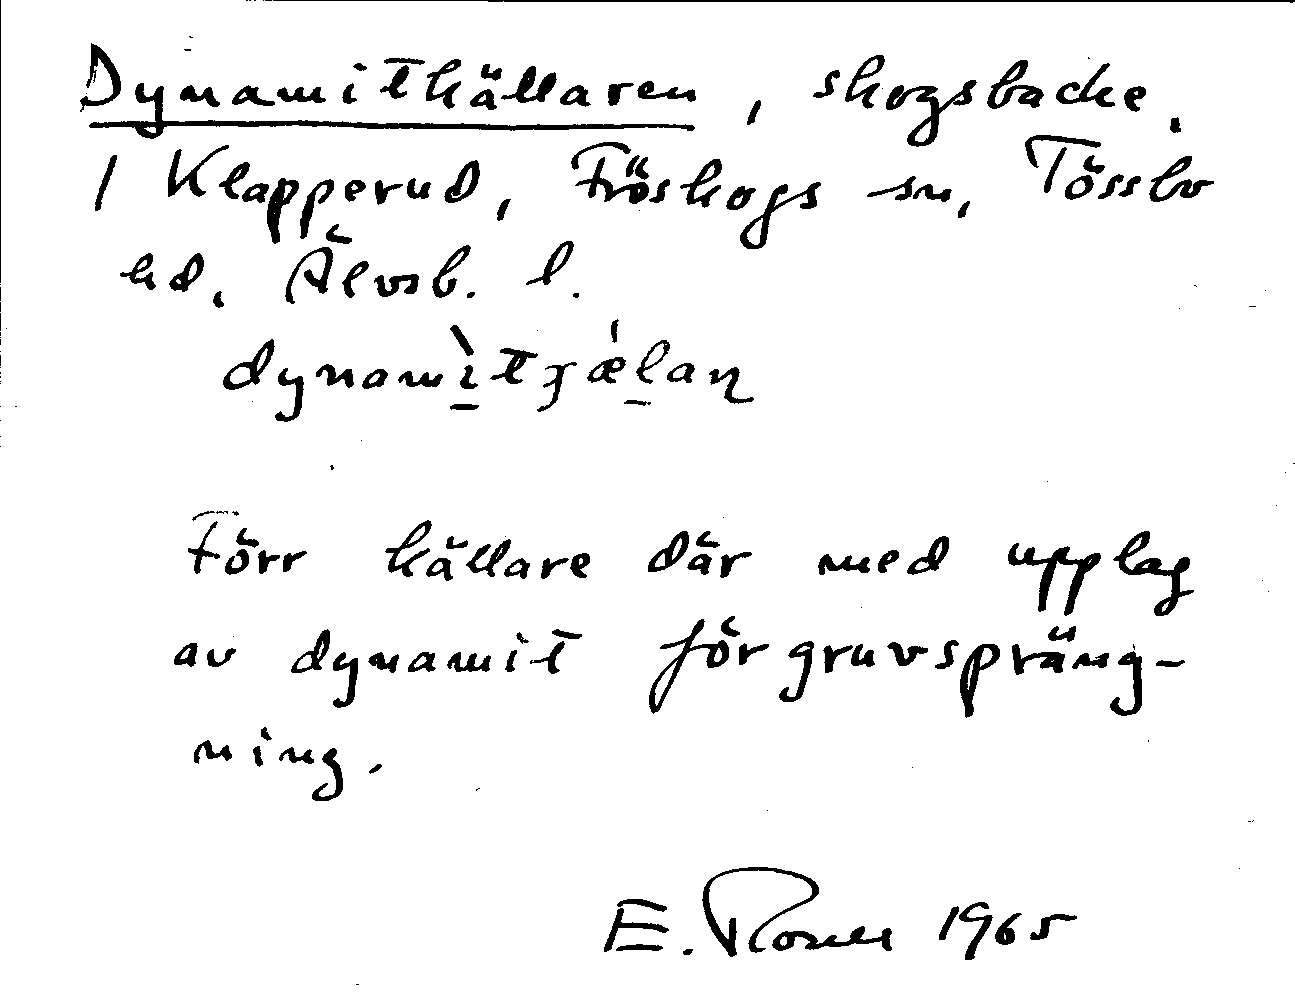 Dynamitkällaren, skogsbacke.
I Klapperud, Fröskogs sn, Tössbo
hd, Älvsb. l.
dynamìtʒǽlaɳ
Förr källare där med upplag
av dynamit för gruvspräng-
ning.
E. 1965